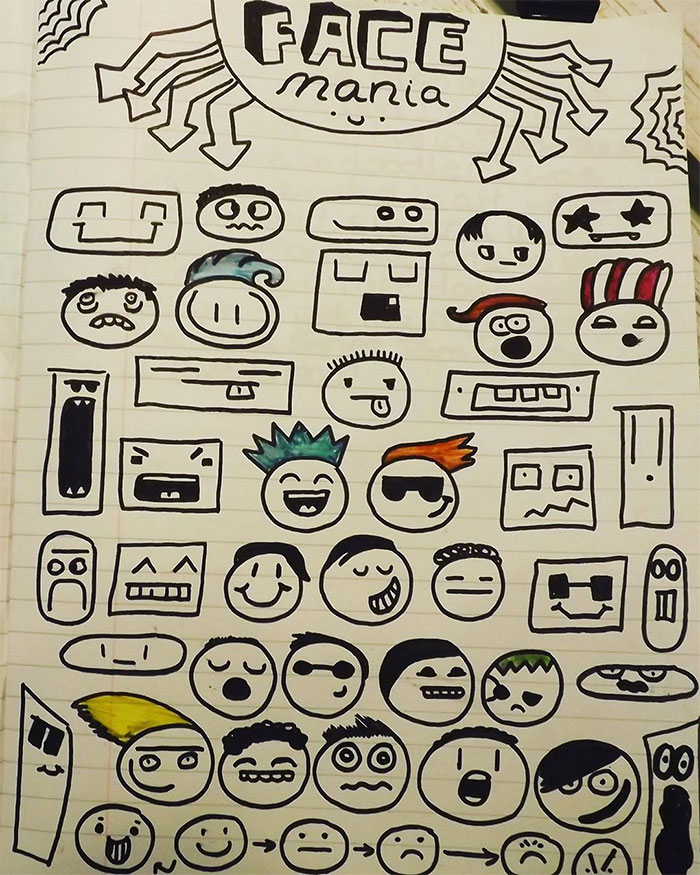 FACE
mania